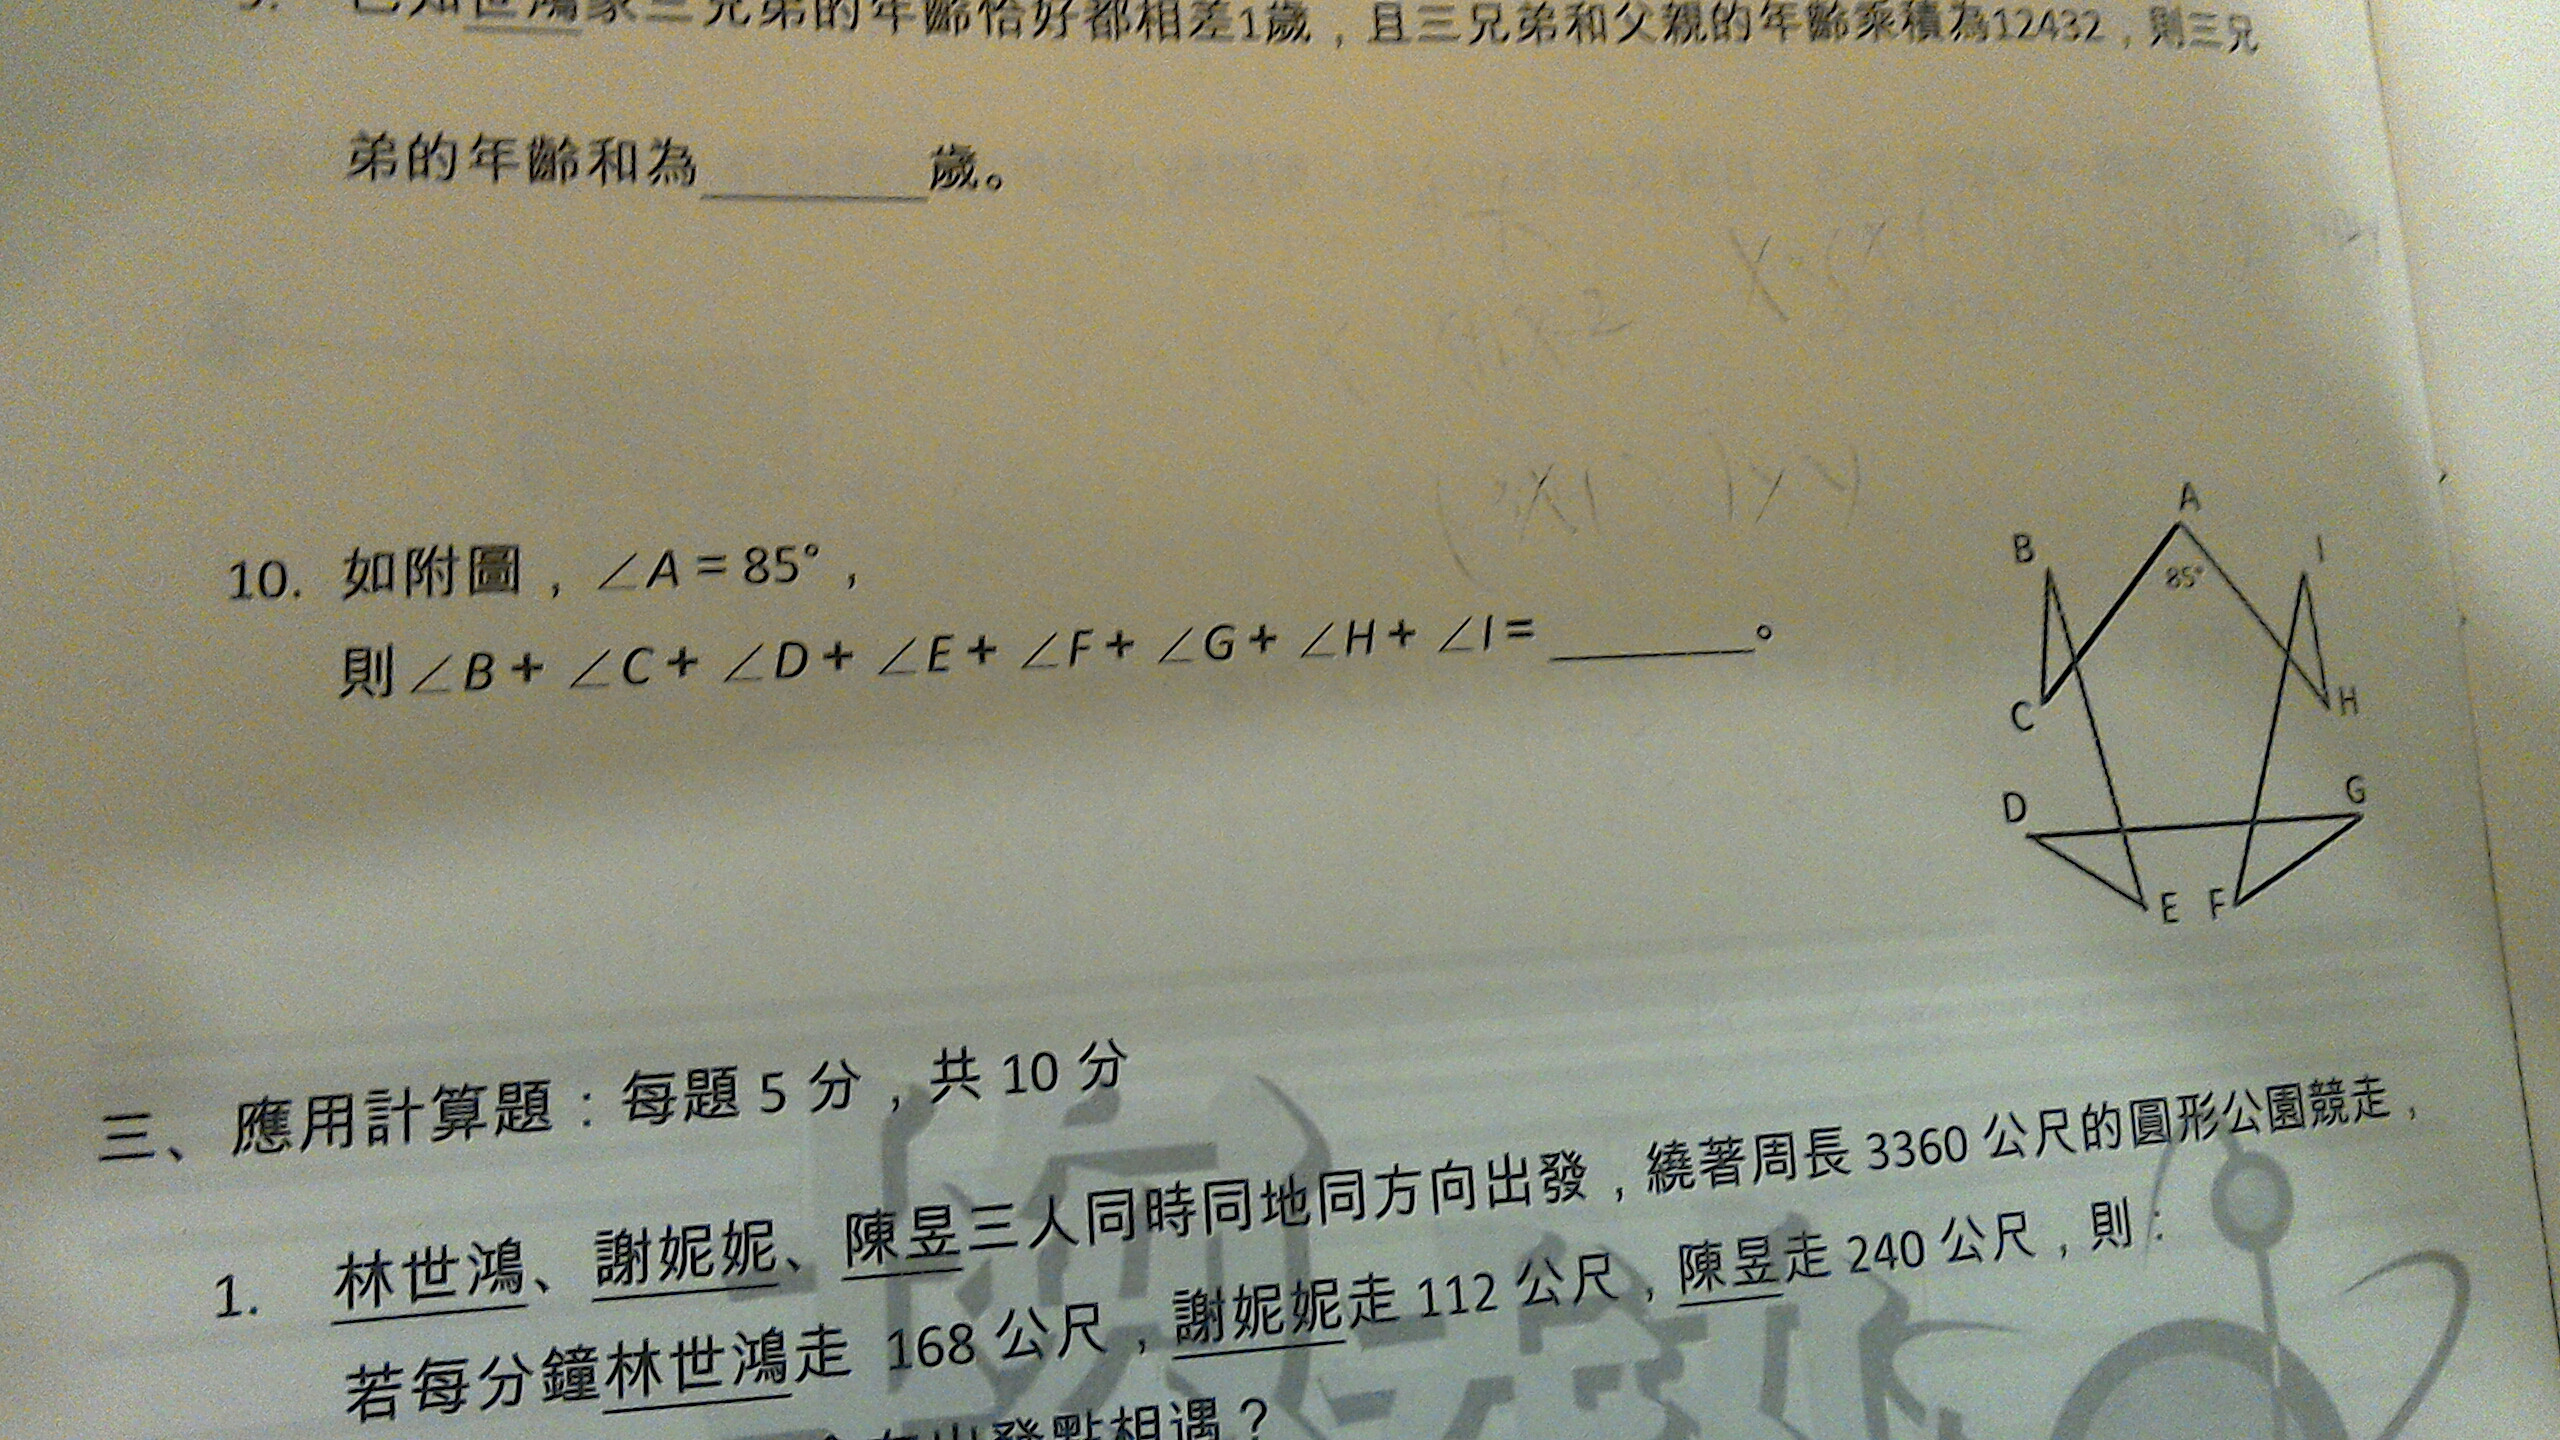 已知世鴻家三兄弟的年齡恰好都相差1歲，且三兄弟和父親的年齡乘積為12432，則三兄
弟的年齡和為________歲。
10. 如附圖，∠A＝85°，
則∠B＋∠C＋∠D＋∠E＋∠F＋∠G＋∠H＋∠I＝________°
A
B
I
85°
C
H
D
G
E
F
三、應用計算題：每題 5 分，共 10 分
1. 林世鴻、謝妮妮、陳昱三人同時同地同方向出發，繞著周長 3360 公尺的圓形公園競走，
若每分鐘林世鴻走 168 公尺，謝妮妮走 112 公尺，陳昱走 240 公尺，則：
出發點相遇？